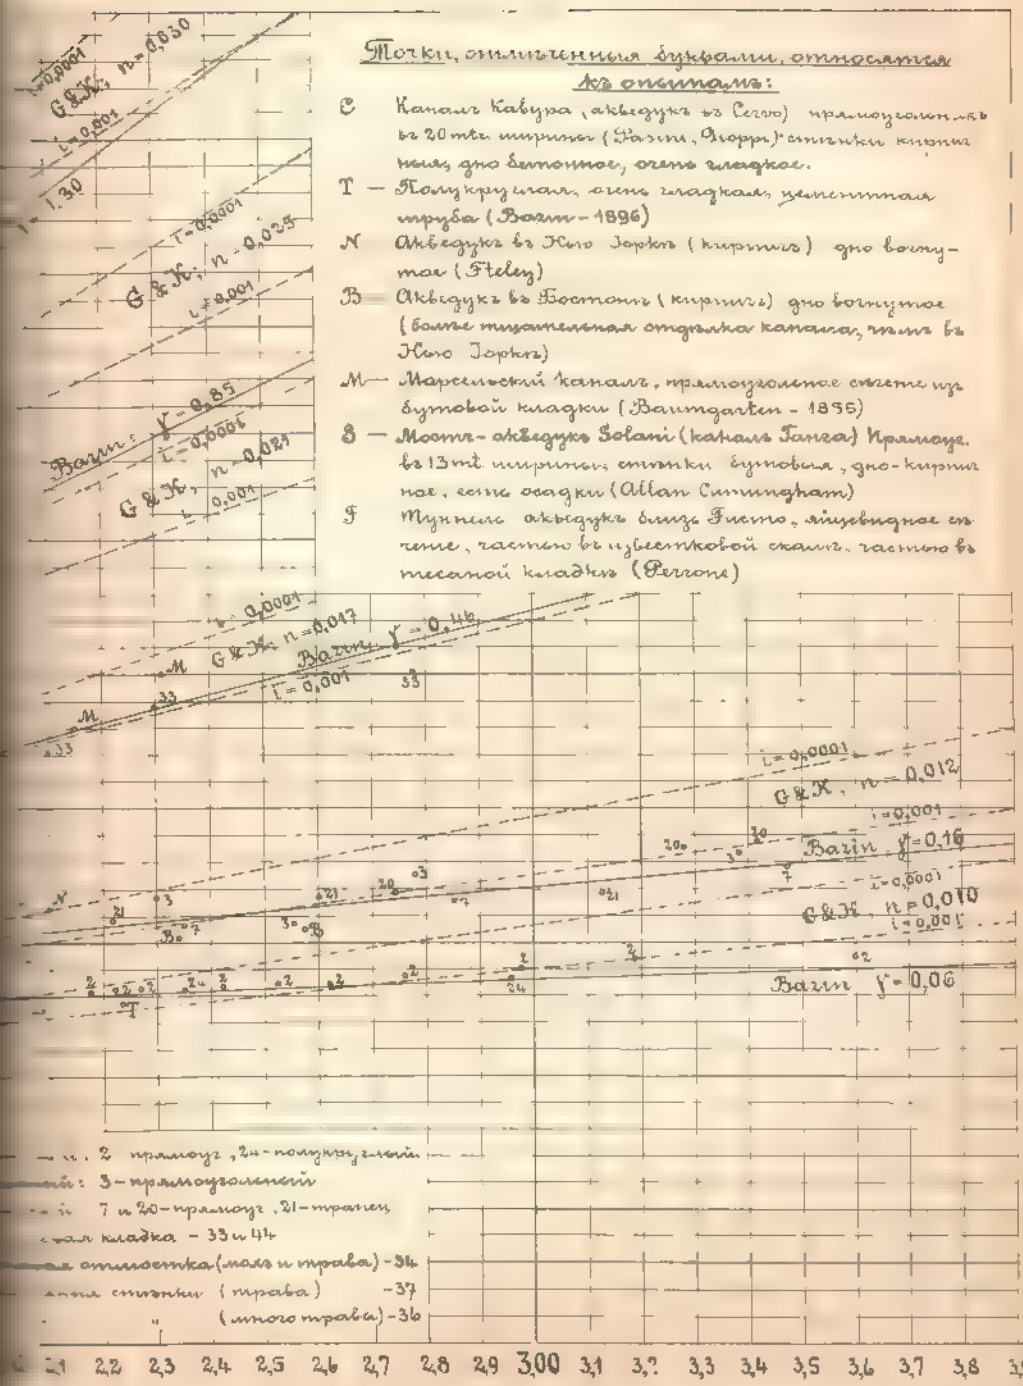 Точки, отмѣченныя буквами, относятся
къ опытамъ:
C Каналъ Кавура, акведукъ въ Cervo) прямоугольникъ
въ 20 mtr. ширины (Pasini, Gioppi) стѣнки кирпич
ныя, дно бетонное, очень гладкое.
T — Полукруглая, очень гладкая, цементная
труба (Bazin - 1896)
N Акведукъ въ Нью Іоркѣ (кирпичъ) дно вогну-
тое (Fteley)
B Акведукъ въ Бостонѣ (кирпичъ) дно вогнутое
(болѣе тщательная отдѣлка канала, чѣмъ въ
Нью Іоркѣ)
M — Марсельскій каналъ, прямоугольное сѣченіе изъ
бутовой кладки (Baumgarten - 1855)
S — Мостъ-акведукъ Solani (каналъ Ганга) Прямоуг.
въ 13 mt. ширины, стѣнки бутовыя, дно-кирпич
ное, есть осадки (Allan Cunningham)
F Туннель акведукъ близъ яйцевидное сѣ
ченіе, частью въ известковой скалѣ, частью въ
тесаной кладкѣ (Perrone)
i=0,0001
G & K; n=0,030
i=0,001
1.30
i=0,0001
G & K; n=0,025
i=0,001
Bazin: γ=0,85
i=0,0001
G & K, n=0,021
0,001
i=0,0001
G & K, n=0,017
Bazin, γ=0,46
i=0,001
M
33
33
M
33
i=0,0001
G & K, n=0,012
i=0,001
Bazin γ=0,16
i=0,0001
G & K, n=0,010
i=0,001
Bazin γ=0,06
N 21 3 B 7 3 B 21 20 3 7 21 20 3 20 7
2 22 2 24 2 2 2 2 2 24 2 2
T
2 прямоуг, 24-полукруглый
3-прямоугольный
7 и 20-прямоуг, 21-трапец
кладка - 33 и 44
отмостка (и трава) -34
стѣнки (трава) -37
" (много травы) -36
2,1 2,2 2,3 2,4 2,5 2,6 2,7 2,8 2,9 3,00 3,1 3,2 3,3 3,4 3,5 3,6 3,7 3,8